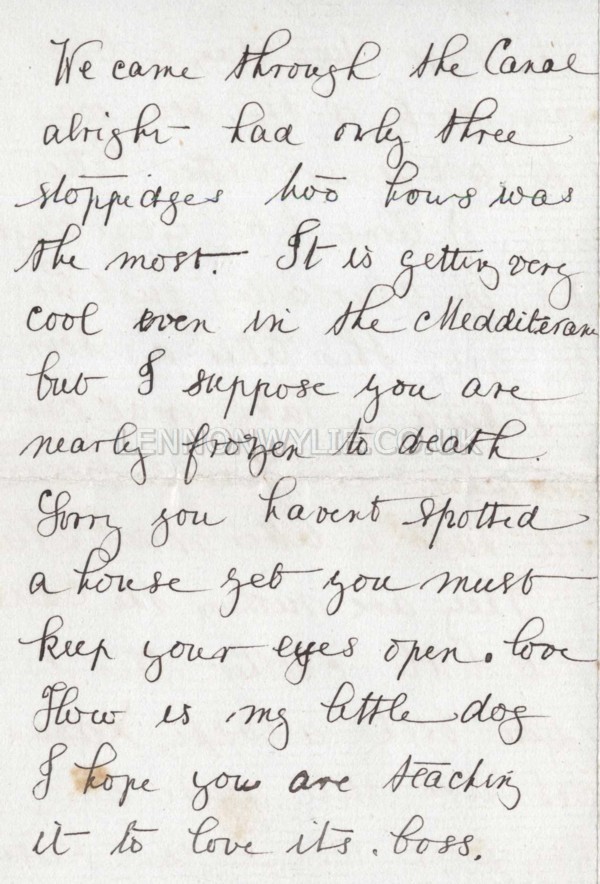 We came through the Canal
alright had only three
stoppidges two hours was
the most. It is getting very
cool even in the Medditerane
but I suppose you are
nearly frozen to death.
LENNONWYLIE.CO.UK
Sorry you havent spotted
a house yet you must
keep your eyes open. love
How is my little dog
I hope you are teaching
it to love its. boss.